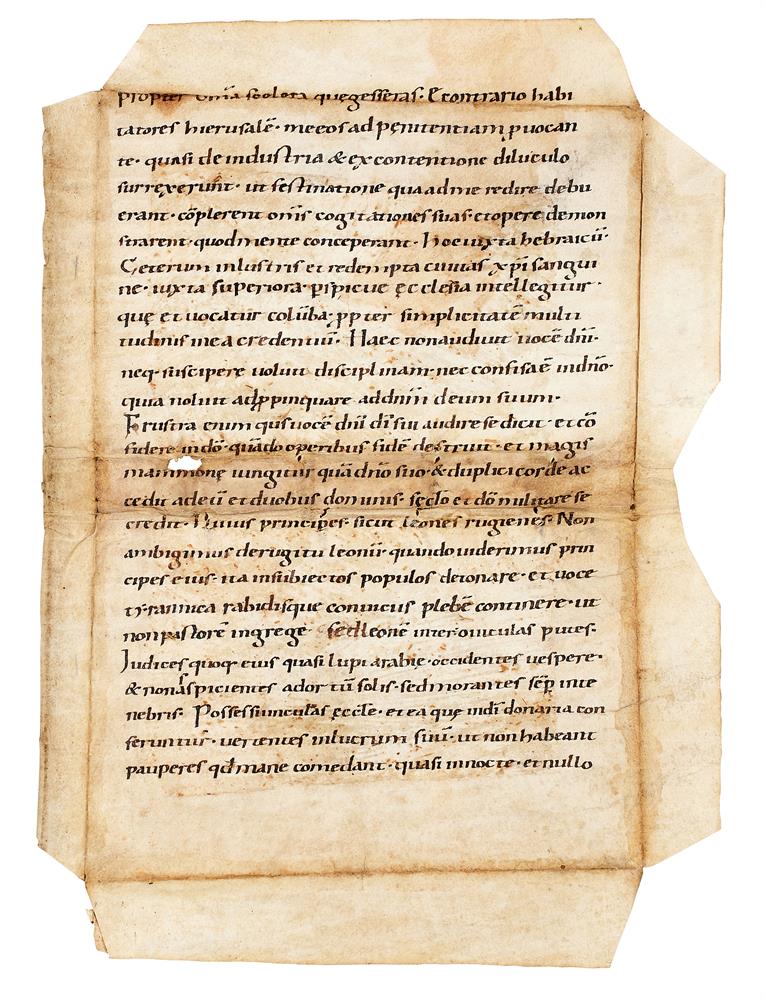 propter om̅ia scelera quę gesseras· E contrario habi
tatores hierusale̅· me eos ad pęnitentiam ꝓuocan
te· quasi de industria & ex contentione diluculo
surrexerunt· ut festinatione qua ad me redire debu
erant· co̅plerent om̅s cogitationes suas· et opere demon
strarent· quod mente conceperant· Hoc iuxta hebraicu̅·
Ceterum inlustris et redempta ciuitas xp̅i sangui
ne· iuxta superiora· ꝑspicue ęcclesia intellegitur·
quę et uocatur colu̅ba· ꝓpter simplicitate̅ multi
tudinis in ea credentiu̅· Haec non audiuit uoce̅ dn̅i·
neq· suscipere uoluit disciplinam· nec confisa e̅ in dn̅o·
quia noluit adꝓpinquare ad dn̅m deum suum·
Frustra enim quis uoce̅ dn̅i di̅ sui audire se dicit· et co̅
fidere in do̅· qua̅do operibus fide̅ destruit· et magis
mammonę iungitur qua̅ dn̅o suo· & duplici corde ac
cedit ad eu̅ et duobus dominis· sęclo et do̅ militare se
credit· Huius principes· sicut leones rugientes· Non
ambigimus de rugitu leonu̅· quando uiderimus prin
cipes eius· ita in subiectos populos detonare· et uoce
tyrannica rabidisque conuiciis plebe̅ continere· ut
non pastore̅ in grege sed leone̅ inter ouiculas putes·
Iudices quoq· eius quasi lupi arabię· occidentes uespere·
& non aspicientes ad ortu̅ solis· sed morantes se̅p in te
nebris· Possessiunculas ęccl̅e· et ea quę in di̅ donaria con
feruntur· uertentes in lucrum suu̅· ut non habeant
pauperes qd̅ mane comedant· quasi in nocte· et nullo